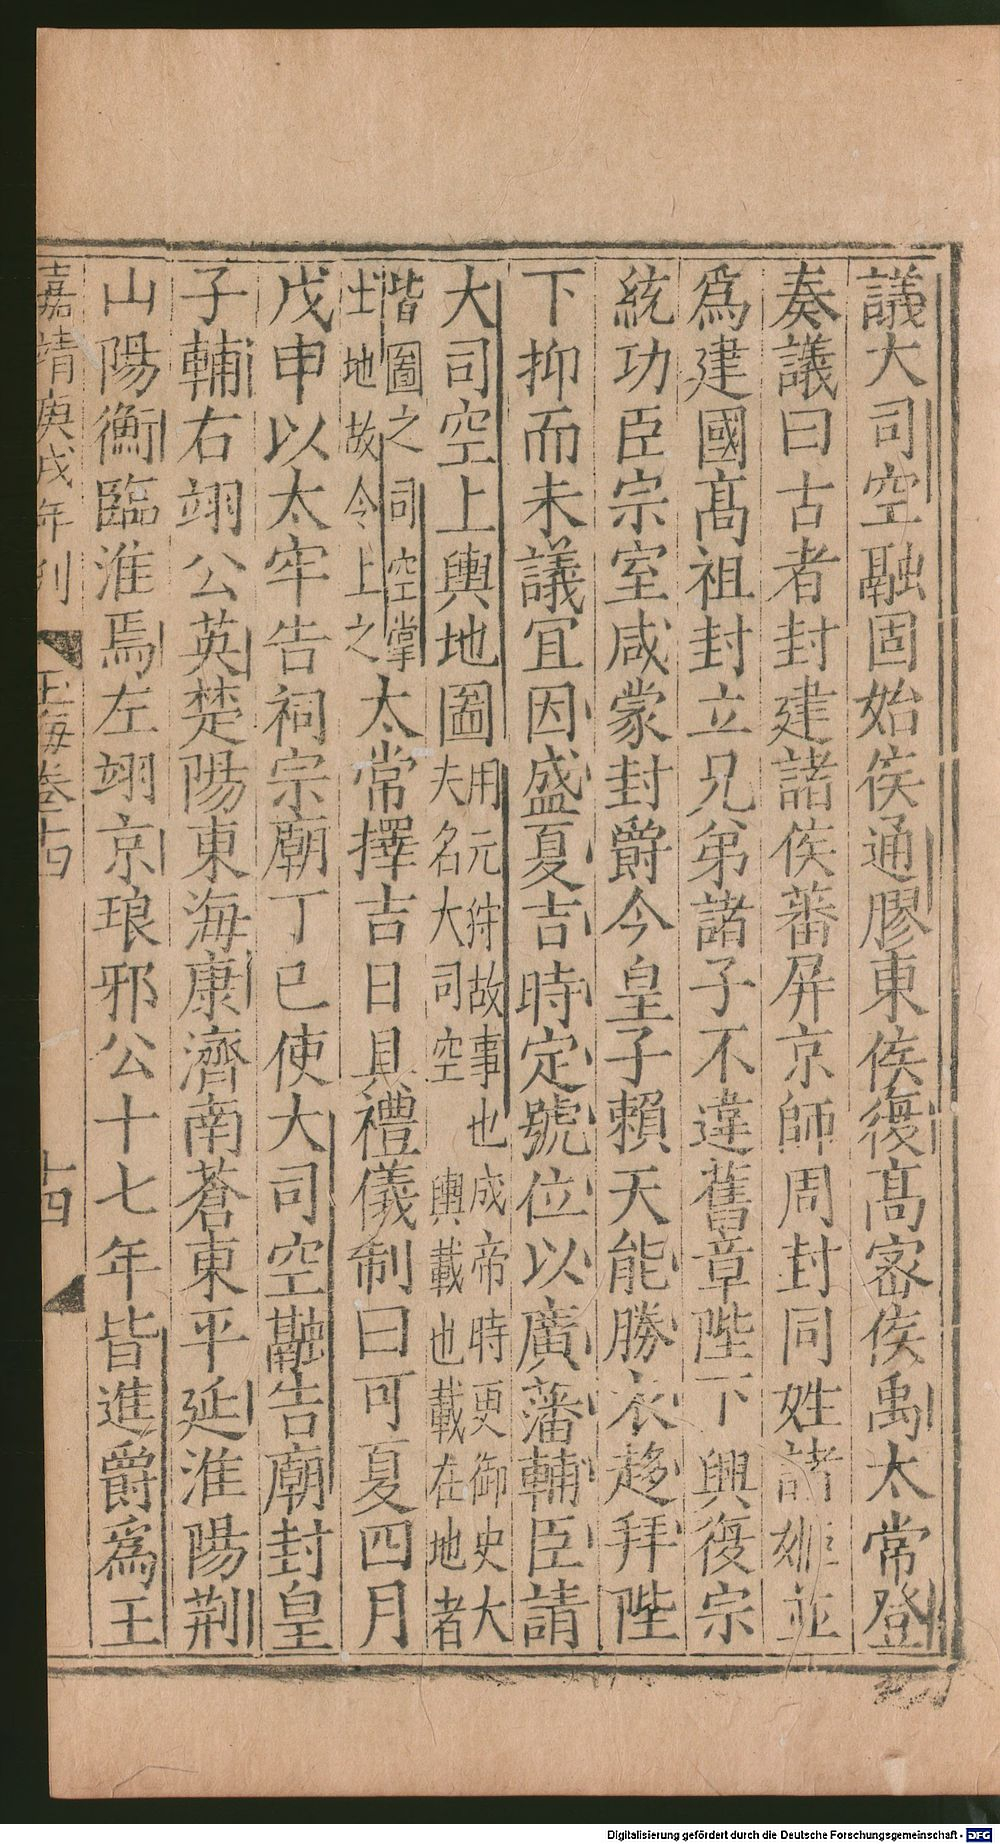 議大司空融固始侯通膠東侯復髙宻侯禹太常登
奏議曰古者封建諸侯蕃屏京師周封同姓諸姬並
爲建國髙祖封立兄弟諸子不違舊章陛下興復宗
統功臣宗室咸蒙封爵今皇子賴天能勝衣趍拜陛
下抑而未議宜因盛夏吉時定號位以廣藩輔臣請
大司空上輿地圖用元狩故事也成帝時更御史大
夫名大司空輿載也載在地者
皆圖之司空掌
土地故令上之太常擇吉日具禮儀制曰可夏四月
戊申以太牢告祠宗廟丁巳使大司空融告廟封皇
子輔右翊公英楚陽東海康濟南蒼東平延淮陽荆
山陽衡臨淮焉左翊京琅邪公十七年皆進爵爲王
嘉靖庚戌年刊 玉海卷十四 十四
Digitalisierung gefördert durch die Deutsche Forschungsgemeinschaft - DFG